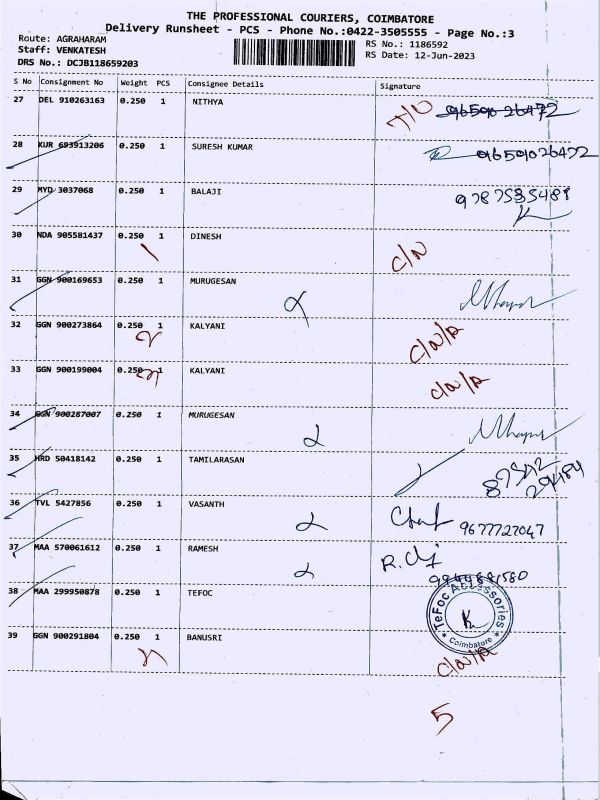 THE PROFESSIONAL COURIERS, COIMBATORE
Delivery Runsheet - PCS - Phone No.:0422-3505555 - Page No.:3
Route: AGRAHARAM
RS No.: 1186592
Staff: VENKATESH
RS Date: 12-Jun-2023
DRS No.: DCJB118659203
S No Consignment No Weight PCS Consignee Details Signature
27 DEL 910263163 0.250 1 NITHYA 9659026472
28 KUR 693913206 0.250 1 SURESH KUMAR 9659026472
29 MYD 3037068 0.250 1 BALAJI 9787535488
30 NDA 905581437 0.250 1 DINESH C/N
31 GGN 900169653 0.250 1 MURUGESAN
32 GGN 900273864 0.250 1 KALYANI C/N/A
33 GGN 900199004 0.250 1 KALYANI C/N/A
34 GGN 900287007 0.250 1 MURUGESAN
35 HRD 50418142 0.250 1 TAMILARASAN
36 TVL 5427856 0.250 1 VASANTH 9677727047
37 MAA 570061612 0.250 1 RAMESH 9944881580
38 MAA 299950878 0.250 1 TEFOC
TeFoc Accessories
* Coimbatore *
39 GGN 900291804 0.250 1 BANUSRI C/N/A
5